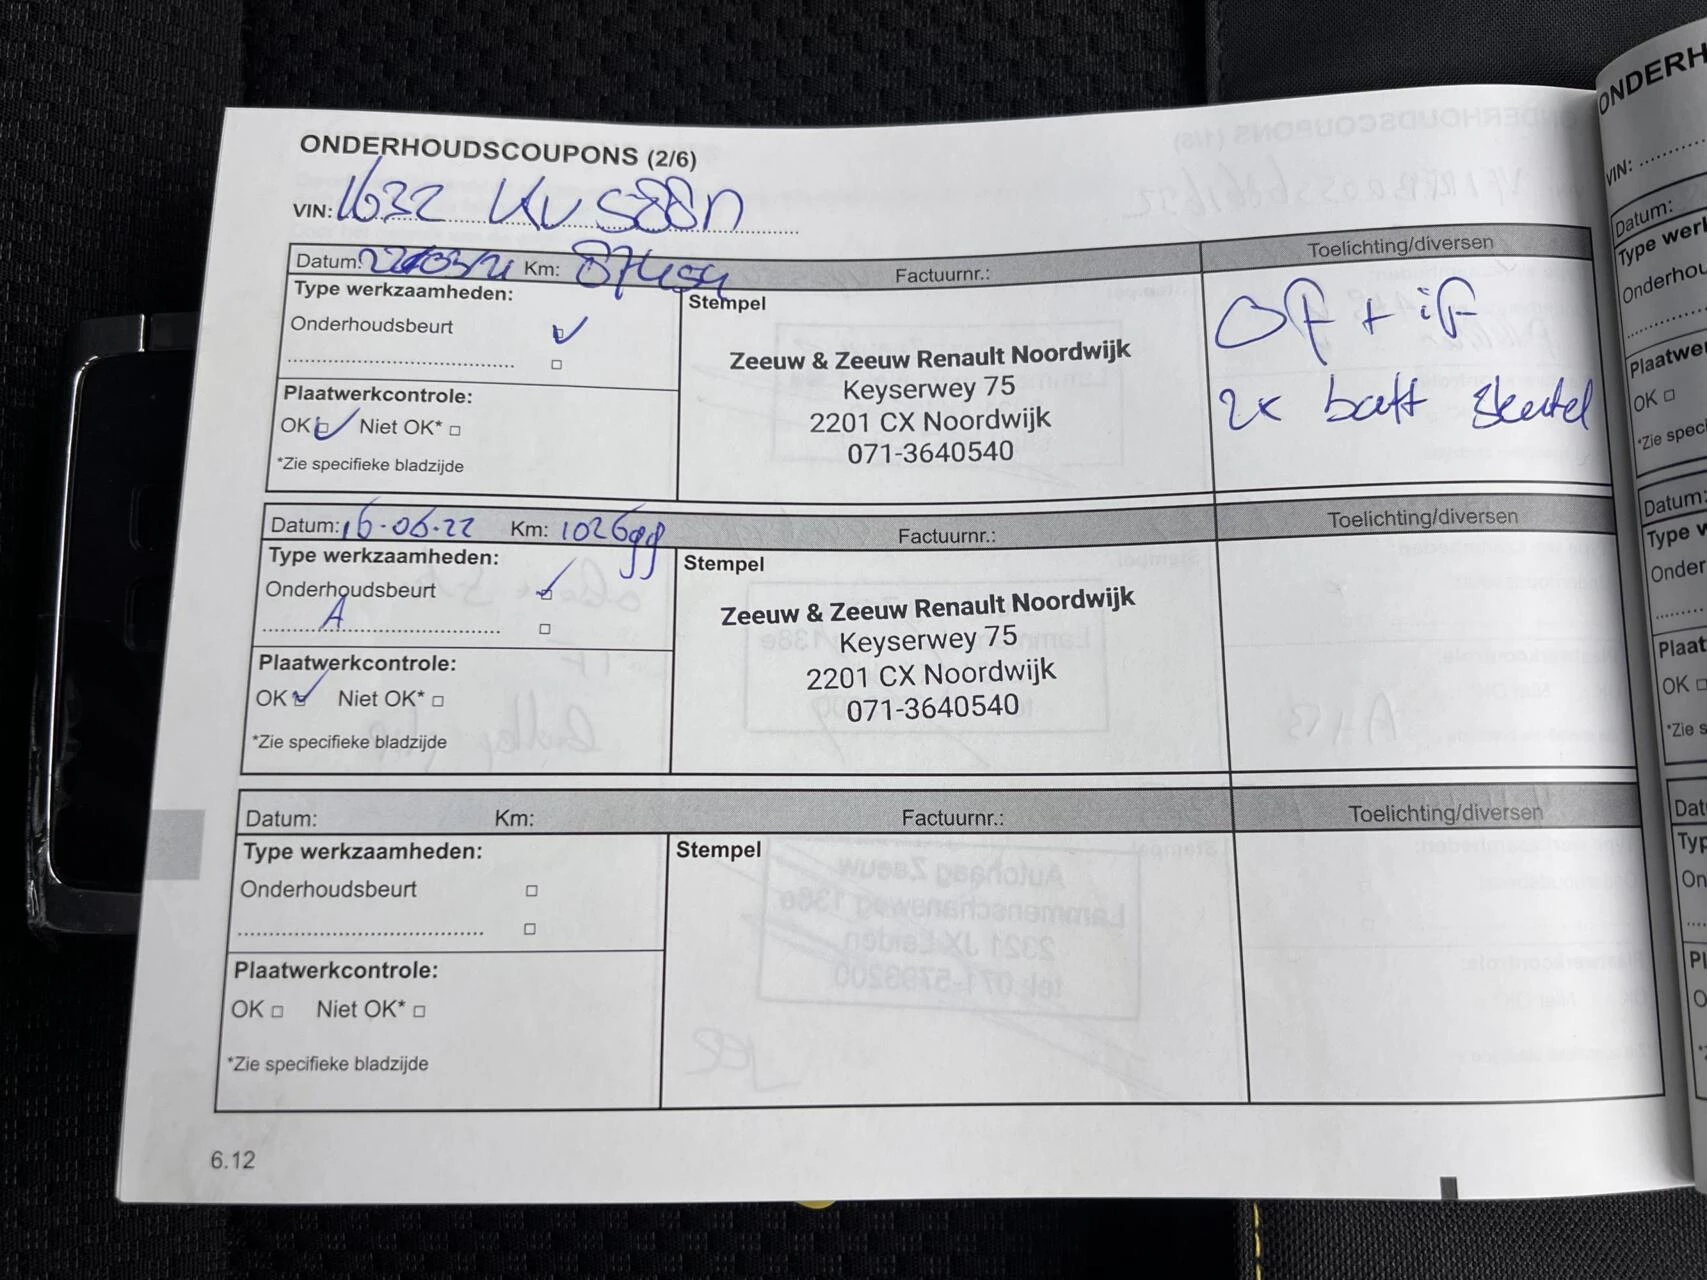 ONDERHOUDSCOUPONS (2/6)
VIN: 1632
Datum: Km: Factuurnr.: Toelichting/diversen
Type werkzaamheden:
Onderhoudsbeurt
Stempel
Zeeuw & Zeeuw Renault Noordwijk
Keyserwey 75
2201 CX Noordwijk
071-3640540
Plaatwerkcontrole:
OK Niet OK*
*Zie specifieke bladzijde
OF + iF
2x batt sleutel
Datum: 16-06-22 Km: 102699 Factuurnr.: Toelichting/diversen
Type werkzaamheden:
Onderhoudsbeurt
A
Stempel
Zeeuw & Zeeuw Renault Noordwijk
Keyserwey 75
2201 CX Noordwijk
071-3640540
Plaatwerkcontrole:
OK Niet OK*
*Zie specifieke bladzijde
Datum: Km: Factuurnr.: Toelichting/diversen
Type werkzaamheden:
Onderhoudsbeurt
Stempel
Plaatwerkcontrole:
OK Niet OK*
*Zie specifieke bladzijde
6.12
VIN:
Datum:
OK
*Zie
Datum:
OK
*Zie